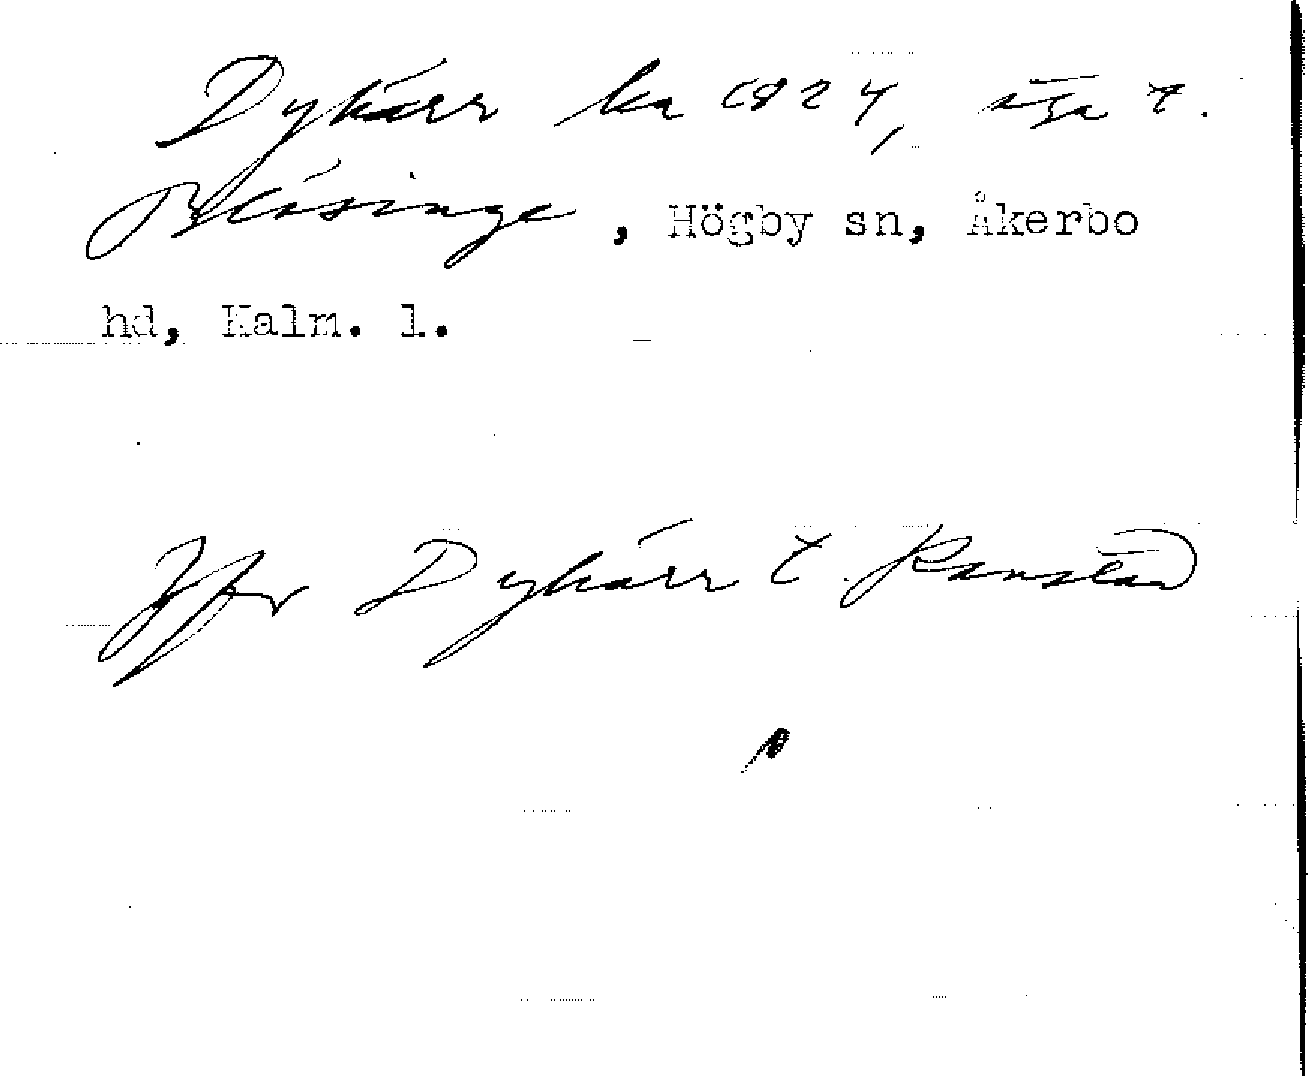 Dykärr ka 1824, äga t.
Bläsinge, Högby sn, Åkerbo
hd, Kalm. l.
Jfr Dykärr t. Ramstad